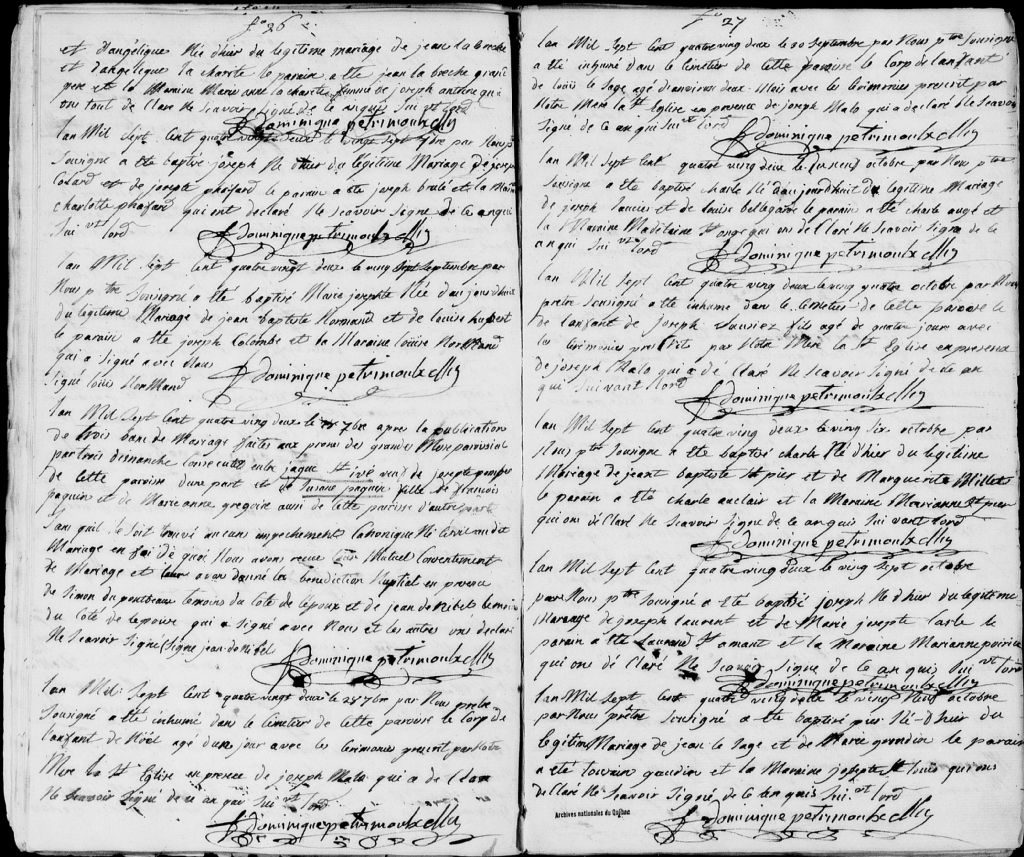 fo 26
et d'angélique Née d'hier du legitime mariage de jean la breche
et d'angelique la charite le parain a eté jean la breche grand
pere et la Maraine Marie anne la charite femme de joseph
ont tout de Clare Ne Scavoir Signé de ce anquis Sui vt lord
f Dominique petrimoulx Mis
lan Mil Sept Cent quatre vingt deux le vingt Sept 7bre par Nous p
Souvigné a eté baptise joseph Né d'hier du legitime Mariage de joseph
Colard et de joseph le parain a eté joseph brulé et la Maraine
charlotte qui ont declaré Ne Scavoir Signé de ce anqui
Sui vt lord
f Dominique petrimoulx Mis
lan Mil Sept Cent quatre vingt deux le ving Sept Septembre par
Nous p tre Souvigné a eté baptisé Marie josephte Née d'au jourd'hui
du legitime Mariage de jean baptiste Normand et de louise hupert
le parain a eté joseph Colombe et la Maraine louise Normand
qui a Signé avec Nous
Signé louis Normand
f Dominique petrimoulx Mis
lan Mil Sept Cent quatre ving deux le 7bre apres la publication
de trois bans de Mariage faites aux prone des grandes Messe paroissial
par trois dimanche consecutif entre jaque St ivé veuf de josepte
de cette paroisse d'une part et de Susane paquin fille de francois
paquin et de Marie anne gregoire aussi de cette paroisse d'autre part
Sans quil Se Soit trouvé aucuns impechements Canonique Ni Civil audit
Mariage en foi de quoi Nous avons recue leur Mutuel Consentement
de Mariage et leur avons donné la benediction Nuptial en presence
de Simon du pontbeau temoins du Coté de l'epoux et de jean de Nibel temoins
du Coté de l'epouse qui a Signé avec Nous et les autres ons declaré
Ne Scavoir Signé Signe jean de Nibel
f Dominique petrimoulx Mis
lan Mil Sept Cent quatre vingt deux le 28 7bre par Nous prebtre
Souvigné a eté inhumé dans le Cimetier de cette paroisse le Corp de
l'anfant de Noël agé d'un jour avec les Ceremonies prescrit par Notre
Mere la Ste Eglise en presence de joseph Malo qui a de Clare
Ne Scavoir Signé de ce an qui Sui vt lord
f Dominique petrimoulx Mis
fo 27
lan Mil Sept Cent quatre ving deux le 30 Septembre par Nous p tre Souvigné
a eté inhumé dans le Cimetier de cette paroisse le Corp de l'anfant
de louis le Sage agé d'anviron deux Mois avec les Ceremonies prescrit par
Notre Mere la Ste Eglise en presence de joseph Malo qui a declaré Ne Scavoir
Signé de ce an qui Sui vt lord
f Dominique petrimoulx Mis
lan Mil Sept Cent quatre ving deux le octobre par Nous p tre
Souvigné a eté baptisé charle Né d'au jourd'huit du legitime Mariage
de joseph Saucier et de louise bellegarde le parain a eté charle augé et
la Maraine Madelaine St ange qui ons de Claré Ne Scavoir Signé de ce
anqui Sui vt lord
f Dominique petrimoulx Mis
lan Mil Sept Cent quatre ving deux le ving quatre octobre par Nous
pretre Souvigné a eté inhumé dans le Cimetier de cette paroisse le
de l'anfant de joseph Sauviez fils agé de quatre jours avec
les Ceremonies prescrits par Notre Mere la Ste Eglise en presence
de joseph Malo qui a de Claré Ne Scavoir Signé de ce an
qui Suivant lord
f Dominique petrimoulx Mis
lan Mil Sept Cent quatre ving deux le ving Six octobre par
Nous p tre Souvigné a eté baptisé charle Né d'hier du legitime
Mariage de jean baptiste St pier et de Marguerite Millet
le parain a eté charle auclair et la Maraine Marianne St pier
qui ons de Claré Ne Scavoir Signé de ce an quis Sui vant lord
f Dominique petrimoulx Mis
lan Mil Sept Cent quatre ving deux le ving Sept octobre
par Nous p tre Souvigné a eté baptisé joseph Né d'hier du legitime
Mariage de joseph laurent et de Marie josepte le
parain a eté laurand St amant et la Maraine Marianne poirier
qui ons de Claré Ne Scavoir Signé de ce an quis Sui vt lord
f Dominique petrimoulx Mis
lan Mil Sept Cent quatre ving deux le ving Neuf octobre
par Nous prêtre Souvigné a eté baptisé pier Né d'hier du
legitime Mariage de jean le Sage et de Marie gaudin le parain
a eté gaudin et la Maraine josepte St louis qui ons
de Claré Ne Scavoir Signé de ce an quis Sui vt lord
f Dominique petrimoulx Mis
Archives nationales du Québec